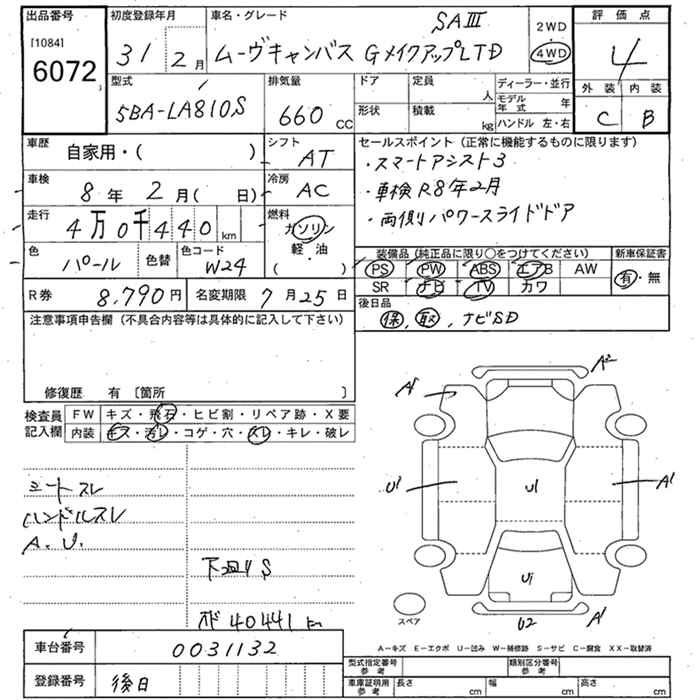 出品番号
[1084]
6072
初度登録年月
31 2月
車名・グレード
SAIII
ムーヴキャンバス GメイクアップLTD
2WD
4WD
評価点
4
外装 内装
C B
型式
5BA-LA810S
排気量
660 CC
ドア 定員 人
形状 積載 kg
ディーラー・並行
モデル年式 年
ハンドル 左・右
車歴
自家用・( )
シフト
AT
車検
8年 2月( 日)
冷房
AC
走行
4万0千440km
燃料
ガソリン
軽・油
( )
色
パール
色替
色コード
W24
セールスポイント (正常に機能するものに限ります)
・スマートアシスト3
・車検R8年2月
・両側パワースライドドア
装備品 (純正品に限り○をつけてください)
新車保証書
PS PW ABS エアB AW
有・無
SR ナビ TV カワ
R券
8,790円
名変期限 7月25日
後日品
保, 取, ナビSD
注意事項申告欄 (不具合内容等は具体的に記入して下さい)
修復歴 有 [箇所 ]
検査員
記入欄
FW キズ・飛石・ヒビ割・リペア跡・X要
内装 キズ・汚レ・コゲ・穴・スレ・キレ・破レ
シートスレ
ハンドルスレ
A.U.
下廻りS
40441
A2
A1
U1
U1
A1
U1
U2
A1
スペア
A-キズ E-エクボ U-凹み W-補修跡 S-サビ C-腐食 XX-取替済
車台番号
0031132
登録番号
後日
型式指定番号
参考
類別区分番号
参考
車庫証明用
参考
長さ cm
幅 cm
高さ cm